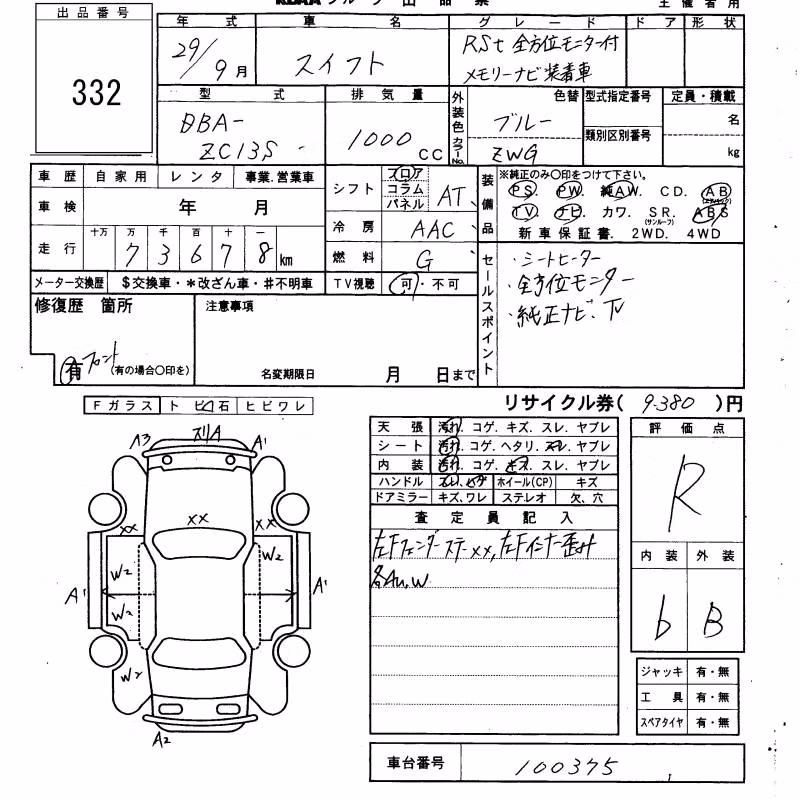 出品番号
332
年 式 車 名 グレード ドア 形状
29/9月 スイフト RSt 全方位モニター付
メモリーナビ装着車
型 式 排気量 外装色 色替 型式指定番号 定員・積載
DBA- ZC13S 1000 CC ブルー 名
カラーNo. ZWG 類別区別番号 kg
車歴 自家用 レンタ 事業.営業車 シフト フロア コラム パネル AT 装備品 ※純正のみ〇印をつけて下さい。
PS. PW. 純AW. CD. AB(エアバッグ)
車検 年 月 冷房 AAC TV. ナビ. カワ. SR.(サンルーフ) ABS
新車保証書. 2WD. 4WD
走行 十万 万 千 百 十 一 73678km 燃料 G
メーター交換歴 $交換車・*改ざん車・#不明車 TV視聴 可・不可
セールスポイント ・シートヒーター
・全方位モニター
・純正ナビ、TV
修復歴 箇所 注意事項
有 フロント (有の場合〇印を) 名変期限日 月 日まで
リサイクル券( 9.380 )円
Fガラス トビ石 ヒビワレ
天張 汚れ. コゲ. キズ. スレ. ヤブレ 評価点
シート 汚れ. コゲ. ヘタリ. スレ. ヤブレ R
内装 汚れ. コゲ. キズ. スレ. ヤブレ
ハンドル スレ. ホイール(CP) キズ
ドアミラー キズ.ワレ ステレオ 欠.穴
査定員記入
左Fフェンダーステーxx, 左Fインナー歪み
各AU,W
内装 外装
b B
A3 スリA A'
xx xx xx
W2 W2
A' W2 A'
W2
A2
ジャッキ 有・無
工具 有・無
スペアタイヤ 有・無
車台番号 100375